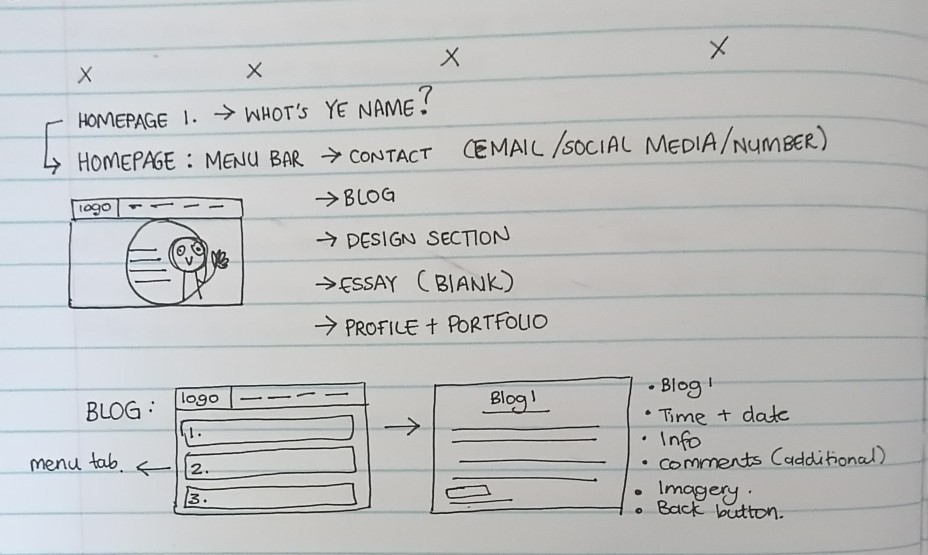 X X X X
HOMEPAGE 1. → WHOT'S YE NAME?
HOMEPAGE : MENU BAR → CONTACT (EMAIL/SOCIAL MEDIA/NUMBER)
→ BLOG
→ DESIGN SECTION
→ ESSAY (BLANK)
→ PROFILE + PORTFOLIO
logo
BLOG :
logo
1.
2.
3.
menu tab.
Blog 1
• Blog 1
• Time + date
• Info
• comments (additional)
• Imagery.
• Back button.